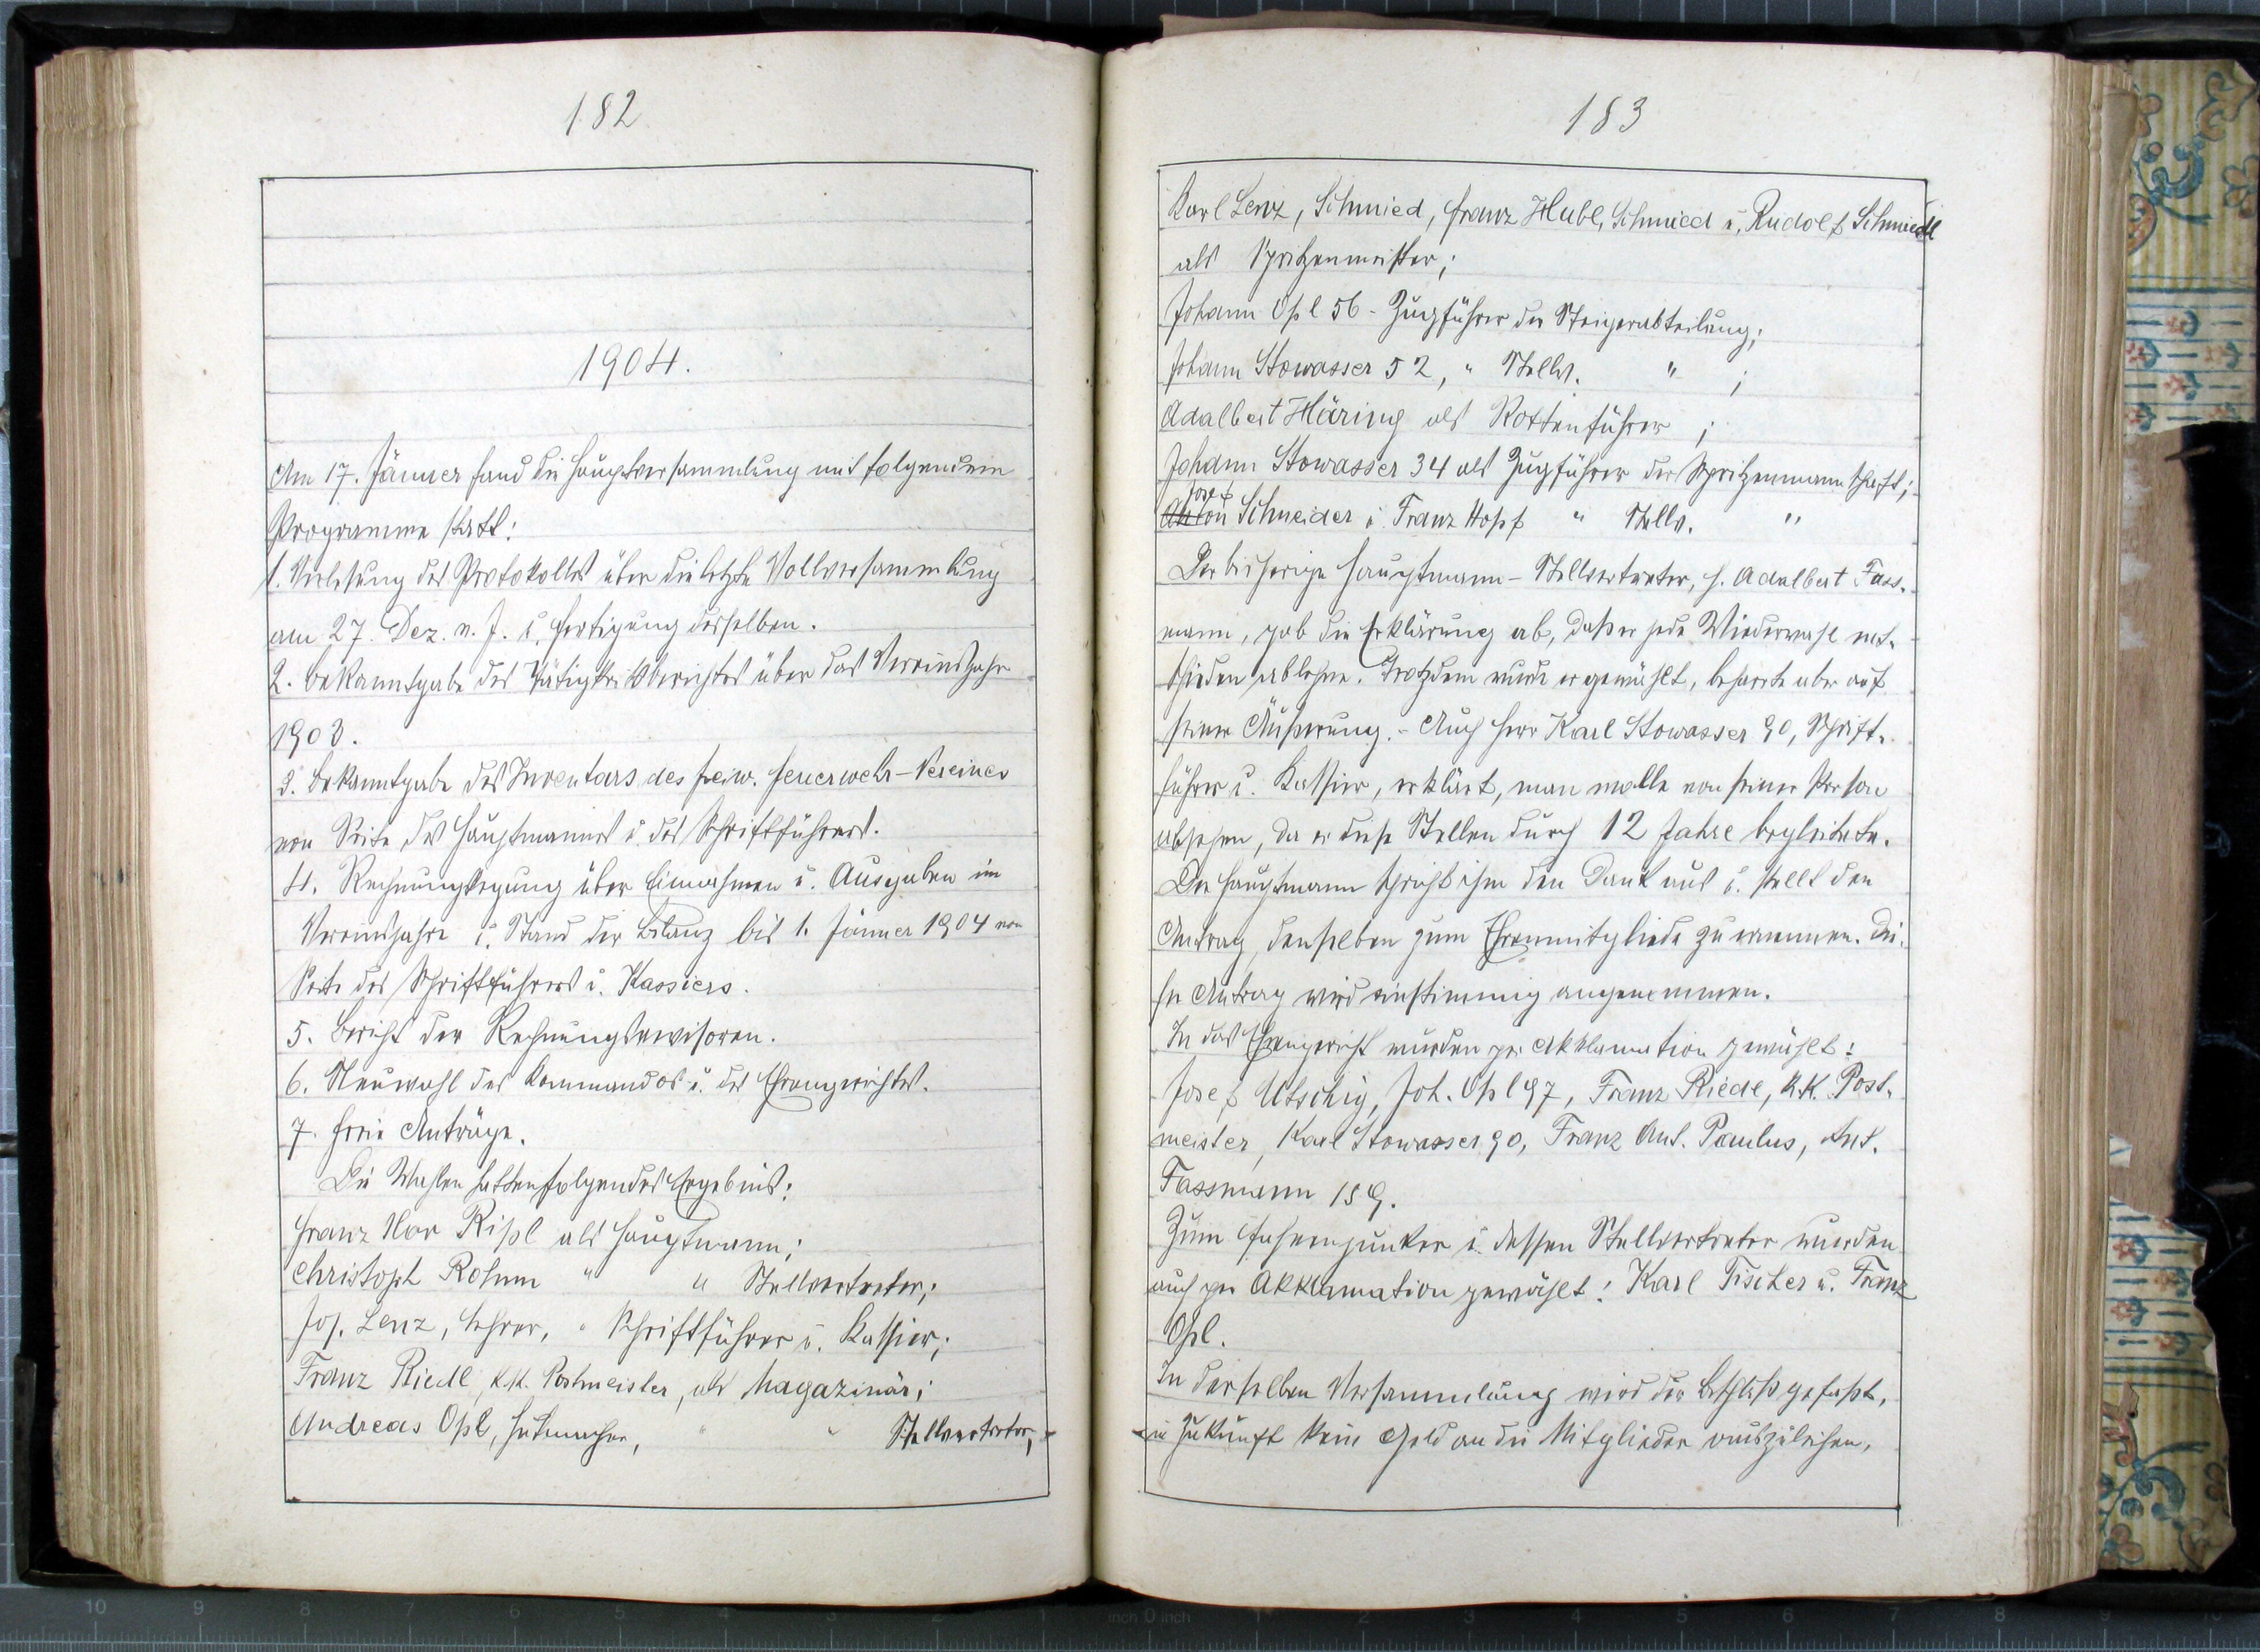 182
1904.
Am 17. Jänner fand die Hauptversammlung mit folgendem
Programme statt:
1. Verlesung des Protokolles über die letzte Vollversammlung
am 27. Dez. v. J. u. Fertigung desselben.
2. Bekanntgabe des Tätigkeitsberichtes über das Vereinsjahr
1903.
3. Bekanntgabe des Inventars des freiw. Feuerwehr-Vereines
von Seite des Hauptmannes u. des Schriftführers.
4. Rechnungslegung über Einnahmen u. Ausgaben im
Vereinsjahre u. Stand der Bilanz bis 1. Jänner 1904 von
Seite des Schriftführers u. Kassiers.
5. Bericht der Rechnungsrevisoren.
6. Neuwahl des Kommandos u. des Ehrengerichtes.
7. Freie Anträge.
Die Wahlen hatten folgendes Ergebnis:
Franz Ripl als Hauptmann;
Christoph Rohm " " Stellvertreter;
Jos. Lenz, Lehrer, " Schriftführer u. Kassier;
Franz Riedl, k.k. Postmeister, als Magazinär;
Andreas Opl, Hutmacher, " " Stellvertreter,
183
Karl Lenz, Schmied, Franz Hubl, Schmied u. Rudolf Schmiedl
als Spritzenmeister;
Johann Opl 56 - Zugführer der Steigerabteilung;
Johann Stowasser 52, " Stellv. " ;
Adalbert Häring als Rottenführer ;
Johann Stowasser 34 als Zugführer der Spritzenmannschaft;
Josef
Anton Schneider u. Franz Hopf " Stellv. "
Der bisherige Hauptmann-Stellvertreter, H. Adalbert Fass-
mann, gab die Erklärung ab, daß er jede Wiederwahl ent-
schieden ablehne. Trotzdem wurde er gewählt, beharrte aber auf
seiner Äußerung. - Auch Herr Karl Stowasser 90, Schrift-
führer u. Kassier, erklärt, man wolle von seiner Person
absehen, da er diese Stellen durch 12 Jahre begleitete.
Der Hauptmann spricht ihm den Dank aus u. stellt den
Antrag, denselben zum Ehrenmitgliede zu ernennen. Die-
ser Antrag wird einstimmig angenommen.
In das Ehrengericht wurden per Akklamation gewählt:
Josef Utschig, Joh. Opl 97, Franz Riedl, k.k. Post-
meister, Karl Stowasser 90, Franz Ant. Paulus, Ant.
Fassmann 159.
Zum Fahnenjunker u. dessen Stellvertreter wurden
auch per Akklamation gewählt: Karl Fischer u. Franz
Opl.
In derselben Versammlung wird der Beschluß gefaßt,
in Zukunft kein Geld an die Mitglieder auszuleihen,